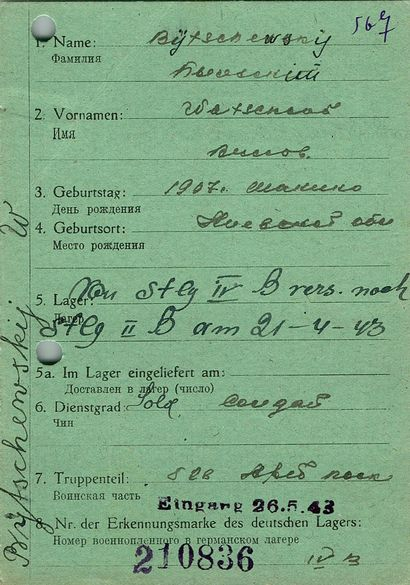 567
1. Name: Bytschewskij
Фамилия
2. Vornamen:
Имя
3. Geburtstag: 1907г.
День рождения
4. Geburtsort: Киевской обл
Место рождения
5. Lager: Von Stlg IV B vers. nach
Лагерь
Stlg II B am 21-4-43
5a. Im Lager eingeliefert am:
Доставлен в лагер (число)
6. Dienstgrad: Sold. солдат
Чин
7. Truppenteil:
Воинская часть
Eingang 26.5.43
8. Nr. der Erkennungsmarke des deutschen Lagers:
Номер военнопленного в германском лагере
210836
IV B
Bytschewskij W